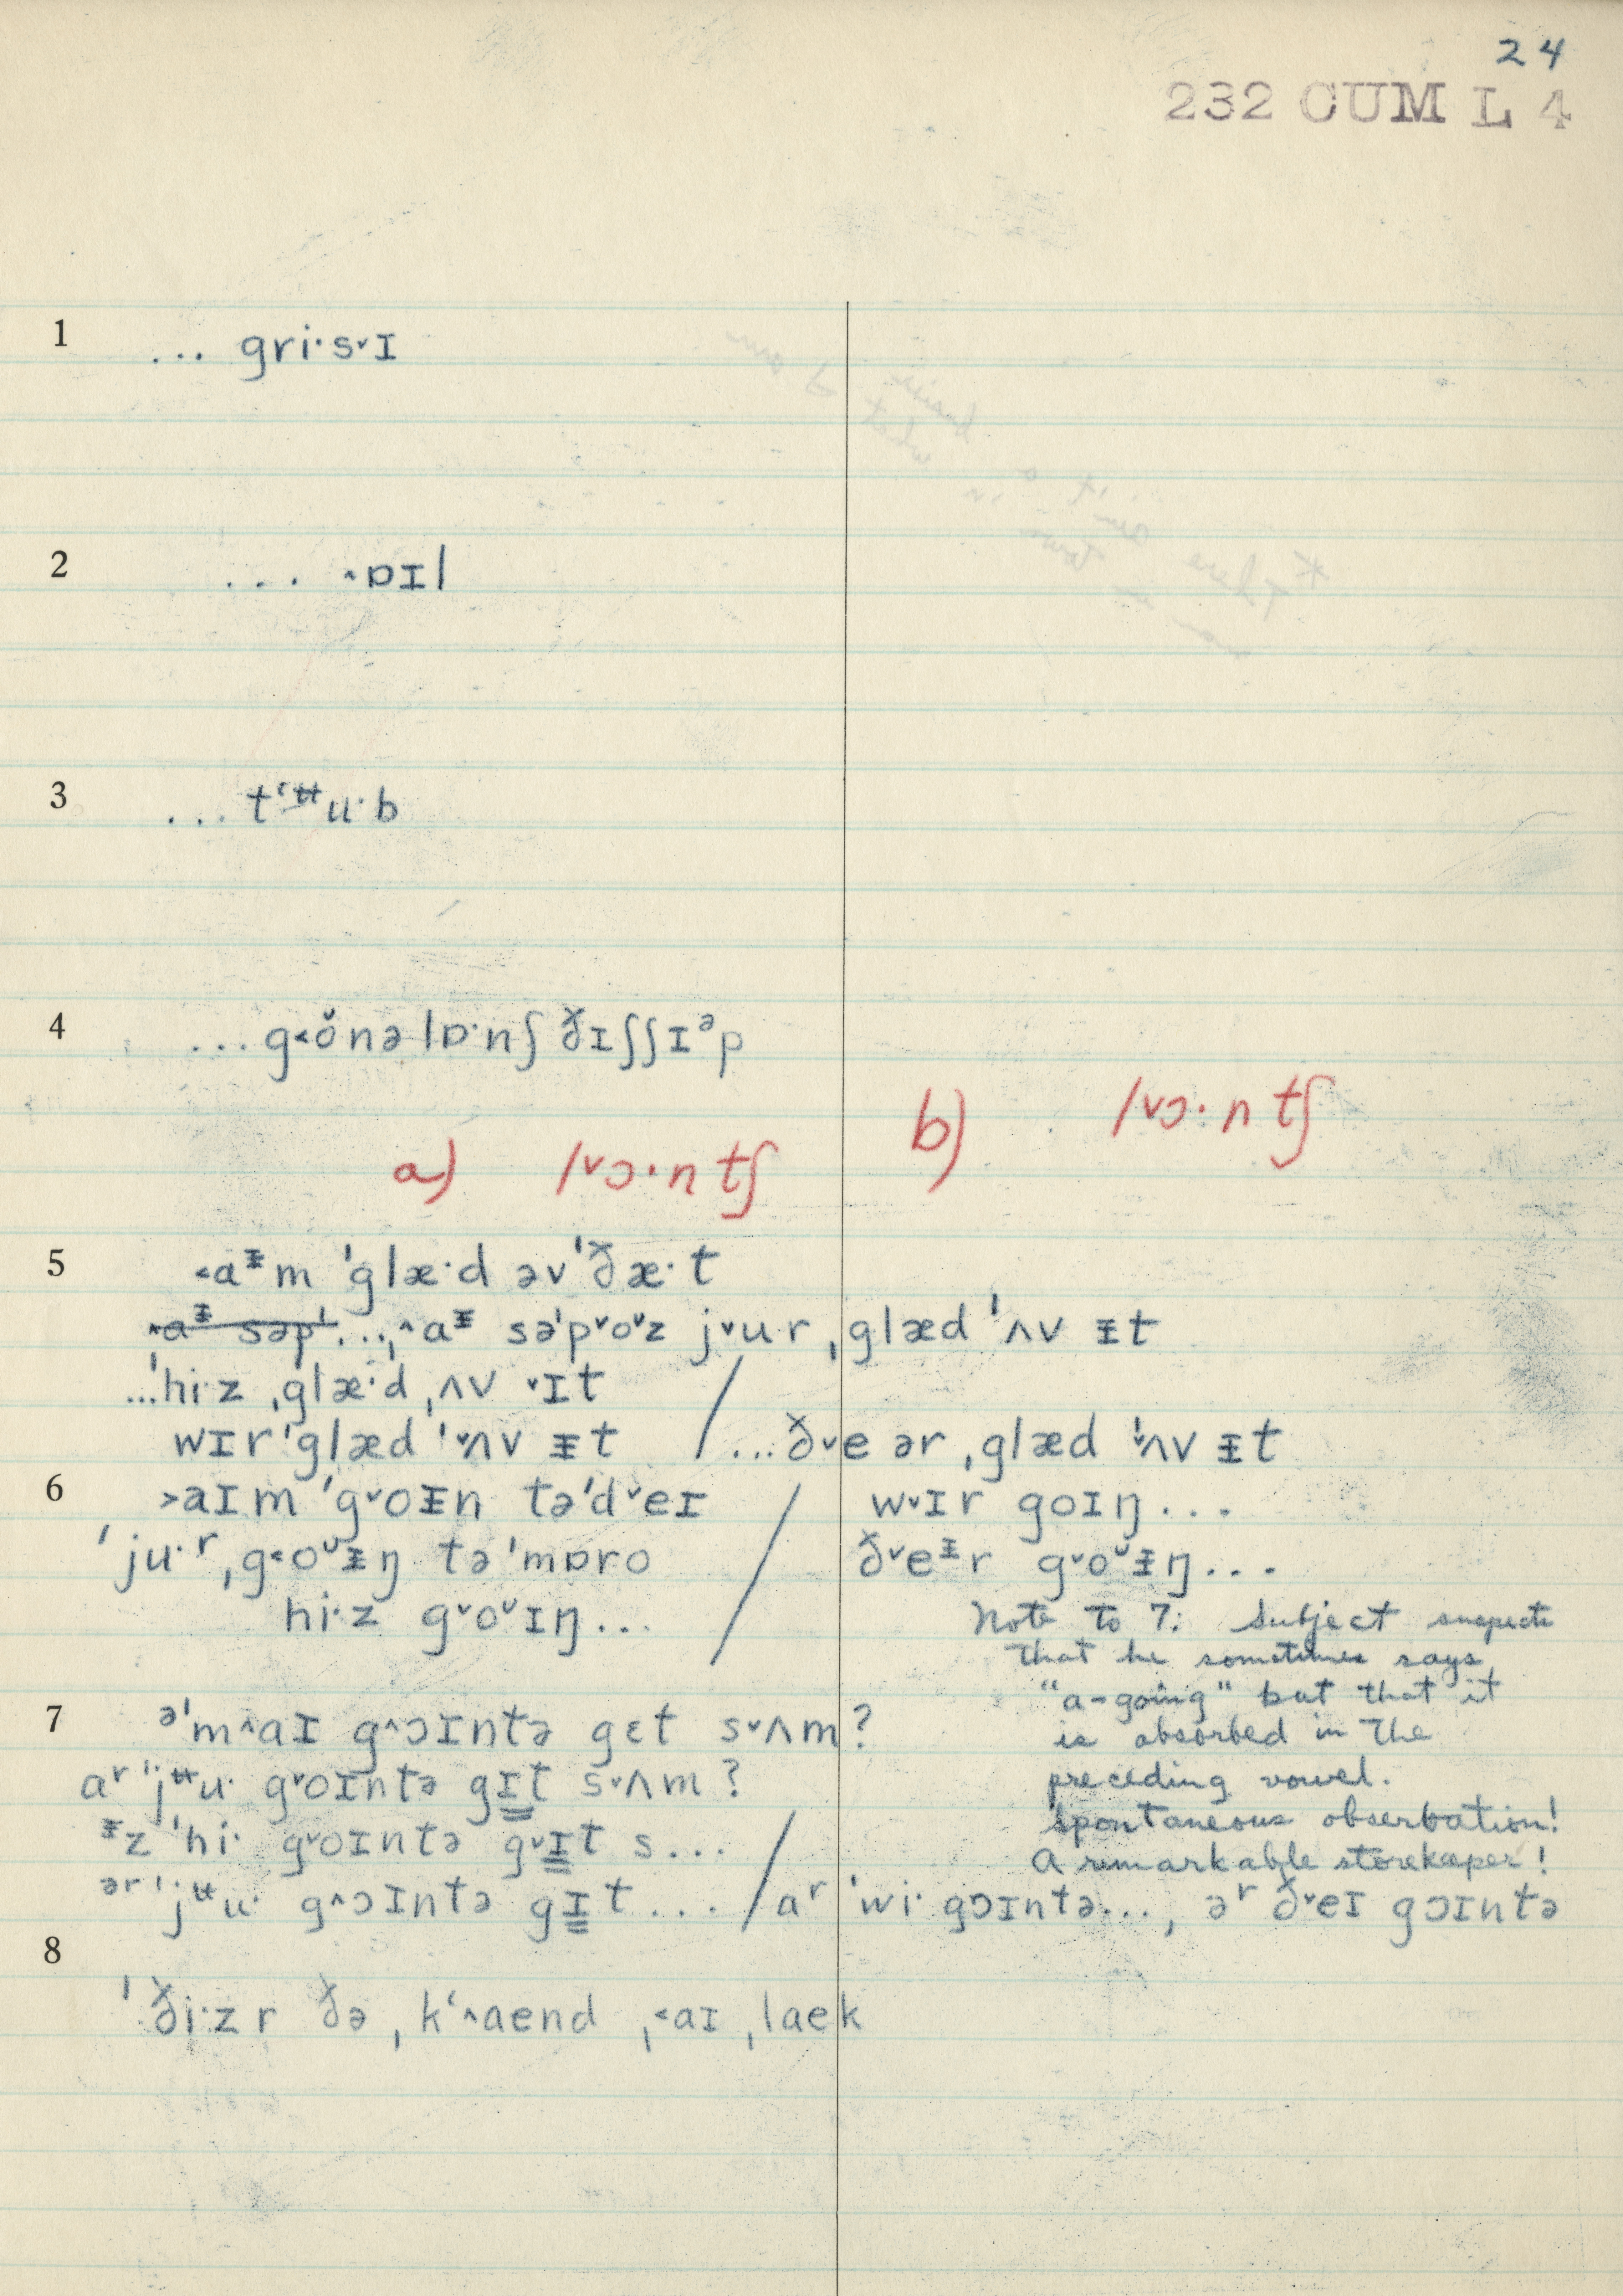 24
232 CUM L 4
1 ... gri·s˅ɪ
2 ... ˄ɒɪl
3 ... tʻᵾu·b
4 ... g˂ŏnə lɒ·nʃ ðɪʃʃɪᵊp
a) l˅ɔ·ntʃ b) l˅ɔ·ntʃ
5 ˂aᵻm ˈglæ·d əvˈðæ·t
˄aᵻ səpˈ...,˄aᵻ səˈp˅o˅z j˅ur ˌglæd ˈʌv ᵻt
...ˈhi·z ˌglæ·d ˌʌv ˅ɪt /
wɪr ˈglæd ˈ˅ʌv ᵻt / ...ð˅e ər ˌglæd ˈ˅ʌv ᵻt
6 ˃aɪm ˈg˅oᵻn təˈd˅eɪ / w˅ɪr goɪŋ...
ˈju·ʳ ˌg˂oᵘᵻŋ təˈmɒro / ð˅eᵻr g˅oᵘᵻŋ...
hi·z g˅oᵘɪŋ... /
Note to 7: Subject suspects
that he sometimes says
"a-going" but that it
is absorbed in the
preceding vowel.
Spontaneous obserbation!
A remarkable storekeeper!
7 ᵊˈm˄aɪ g˄ɔɪntə gɛt s˅ʌm?
aʳ "jᵾu· g˅oɪntə gɪt s˅ʌm?
ᵻz ˈhi· g˅oɪntə g˅ɪt s... /
ᵊʳ ˈjᵾu· g˄ɔɪntə gɪt... / aʳ ˈwi· gɔɪntə..., əʳ ð˅eɪ gɔɪntə
8
ˈði·z r ðə ˌkʻ˄aend ˌ˂aɪ ˌlaek